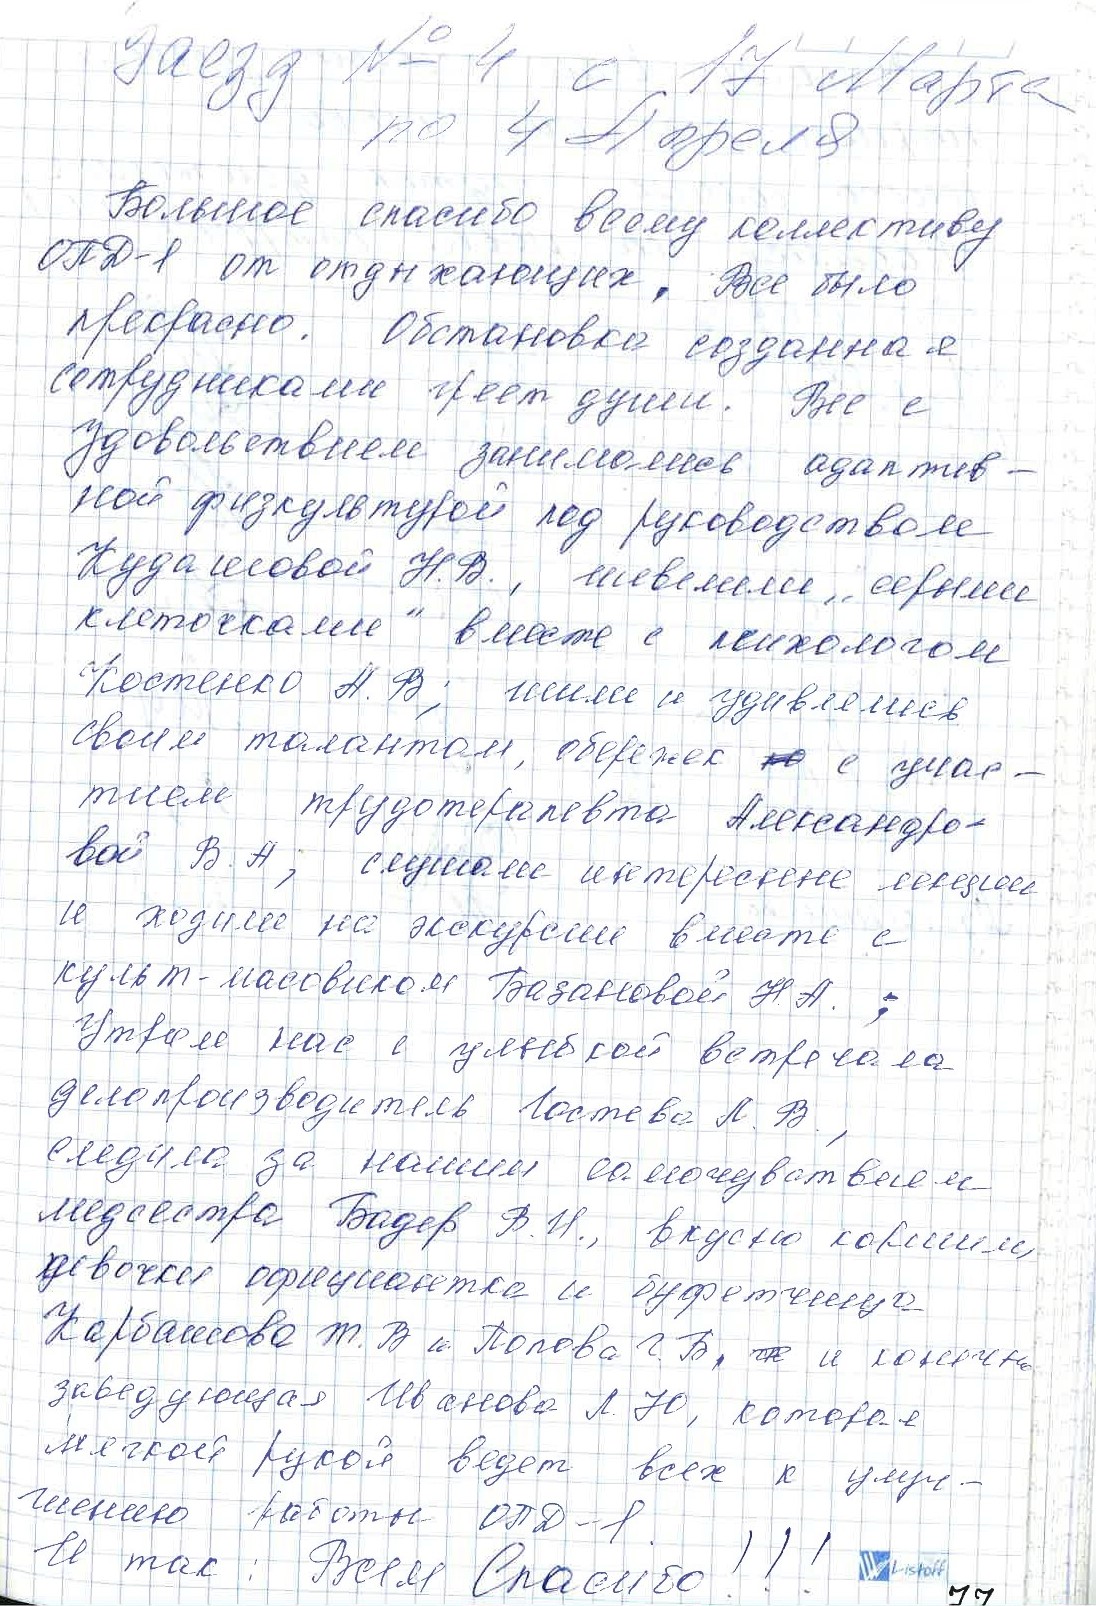 Заезд № 4 с 17 Марта
по 4 Апреля
Большое спасибо всему коллективу
ОПД-1 от отдыхающих. Все было
прекрасно. Обстановка созданная
сотрудниками греет души. Все с
удовольствием занимались адаптив-
ной физкультурой под руководством
Кудашовой Н.В., шевелили „серыми
клеточками" вместе с психологом
Костенко А.В; шили и удивлялись
своим талантам, обережек с учас-
тием трудотерапевта Александро-
вой В.А, слушали интересные лекции
и ходили на экскурсии вместе с
культ-масовиком Базановой Н.А.;
Утром нас с улыбкой встречала
делопроизводитель Гостева Л.В.,
следила за нашим самочувствием
медсестра Бадер В.И., вкусно кормили,
девочки официантка и буфетчица
Карбашова Т.В и Попова Г.Б. и конечно
заведующая Иванова Л.Ю, которая
мягкой рукой ведет всех к улуч-
шению работы ОПД-1.
И так: Всем Спасибо!!!
Listoff
77